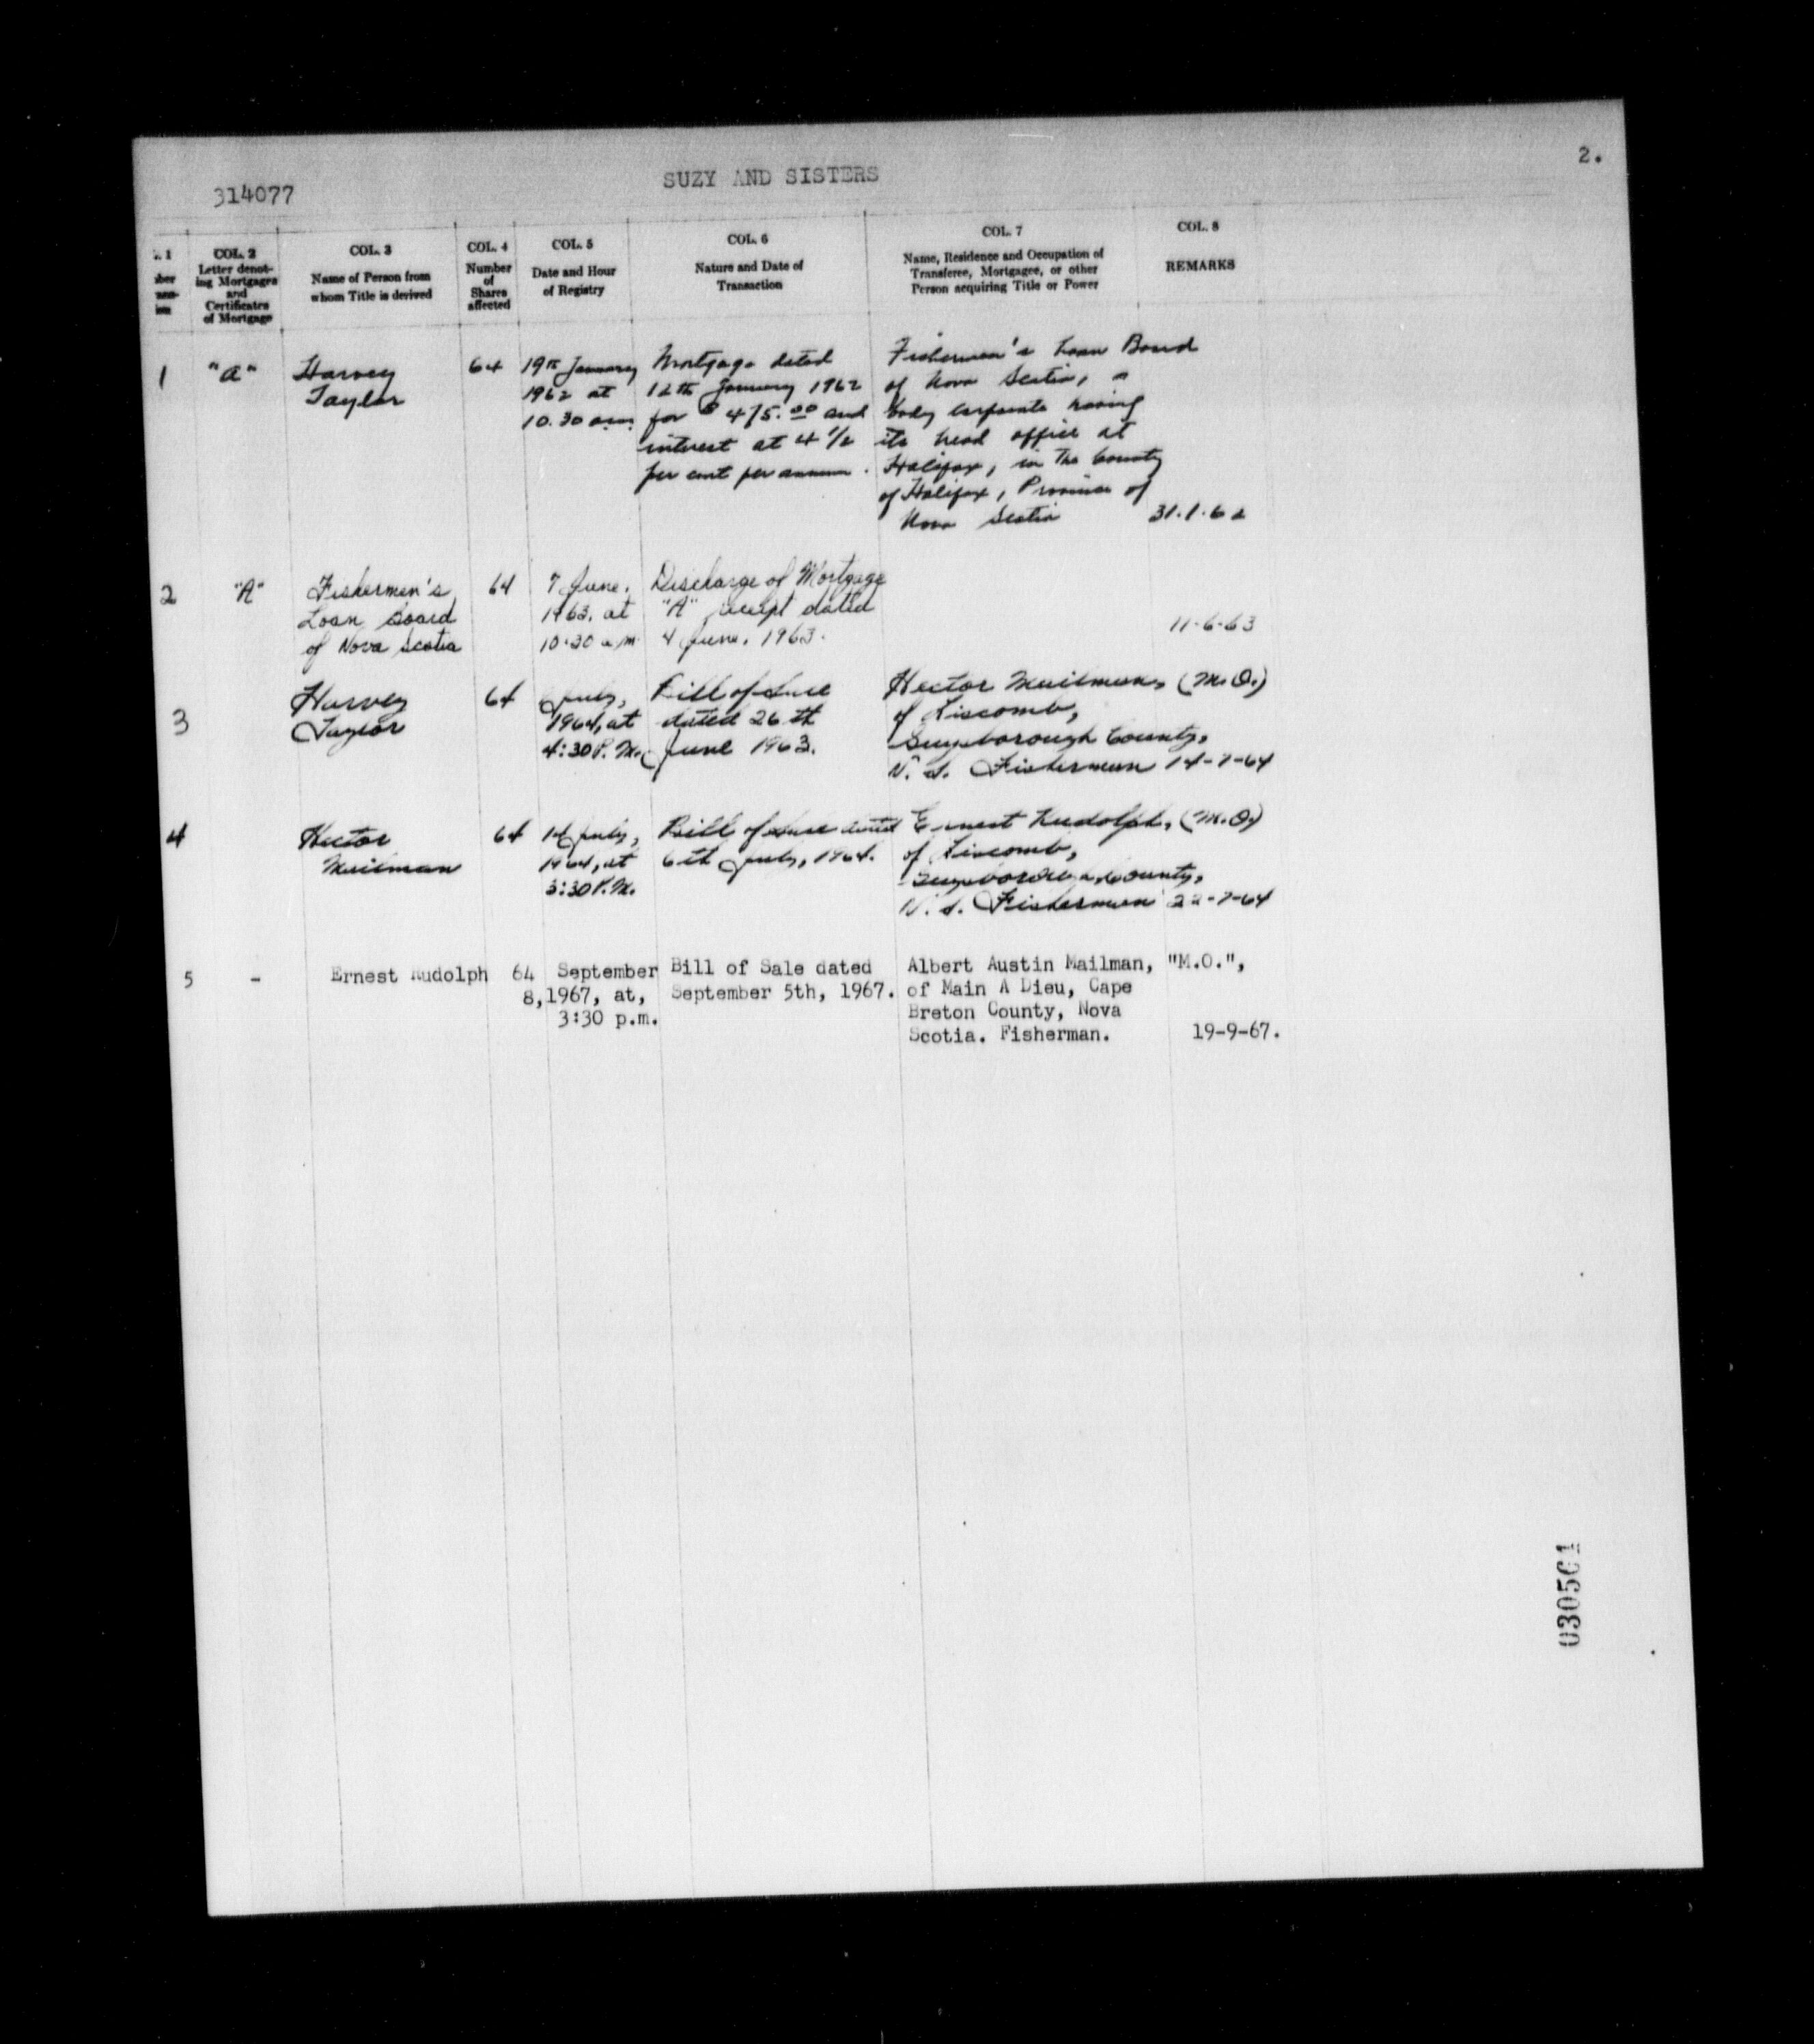 2.
314077
SUZY AND SISTERS
COL. 2
Letter denot-
ing Mortgages
and
Certificates
of Mortgage
COL. 3
Name of Person from
whom Title is derived
COL. 4
Number
of
Shares
affected
COL. 5
Date and Hour
of Registry
COL. 6
Nature and Date of
Transaction
COL. 7
Name, Residence and Occupation of
Transferee, Mortgagee, or other
Person acquiring Title or Power
COL. 8
REMARKS
1
"A"
Harvey
Taylor
64
19th January
1962 at
10.30 a.m.
Mortgage dated
12th January 1962
for $ 475.00 and
interest at 4 1/2
per cent per annum.
Fishermen's Loan Board
of Nova Scotia, a
body corporate having
its head office at
Halifax, in the County
of Halifax, Province of
Nova Scotia
31.1.62
2
"A"
Fishermen's
Loan Board
of Nova Scotia
64
7 June,
1963, at
10.30 a.m.
Discharge of Mortgage
"A" receipt dated
4 June, 1963.
11-6-63
3
Harvey
Taylor
64
6 July,
1964, at
4:30 P.M.
Bill of Sale
dated 26th
June 1963.
Hector Mailman, (M.O.)
of Liscomb,
Guysborough County,
N.S. Fisherman 14-7-64
4
Hector
Mailman
64
14 July,
1964, at
3:30 P.M.
Bill of Sale dated
6th July, 1964.
Ernest Rudolph, (M.O.)
of Liscomb,
Guysborough County,
N.S. Fisherman 22-7-64
5
-
Ernest Rudolph
64
September
8,1967, at,
3:30 p.m.
Bill of Sale dated
September 5th, 1967.
Albert Austin Mailman, "M.O.",
of Main A Dieu, Cape
Breton County, Nova
Scotia. Fisherman.
19-9-67.
030501